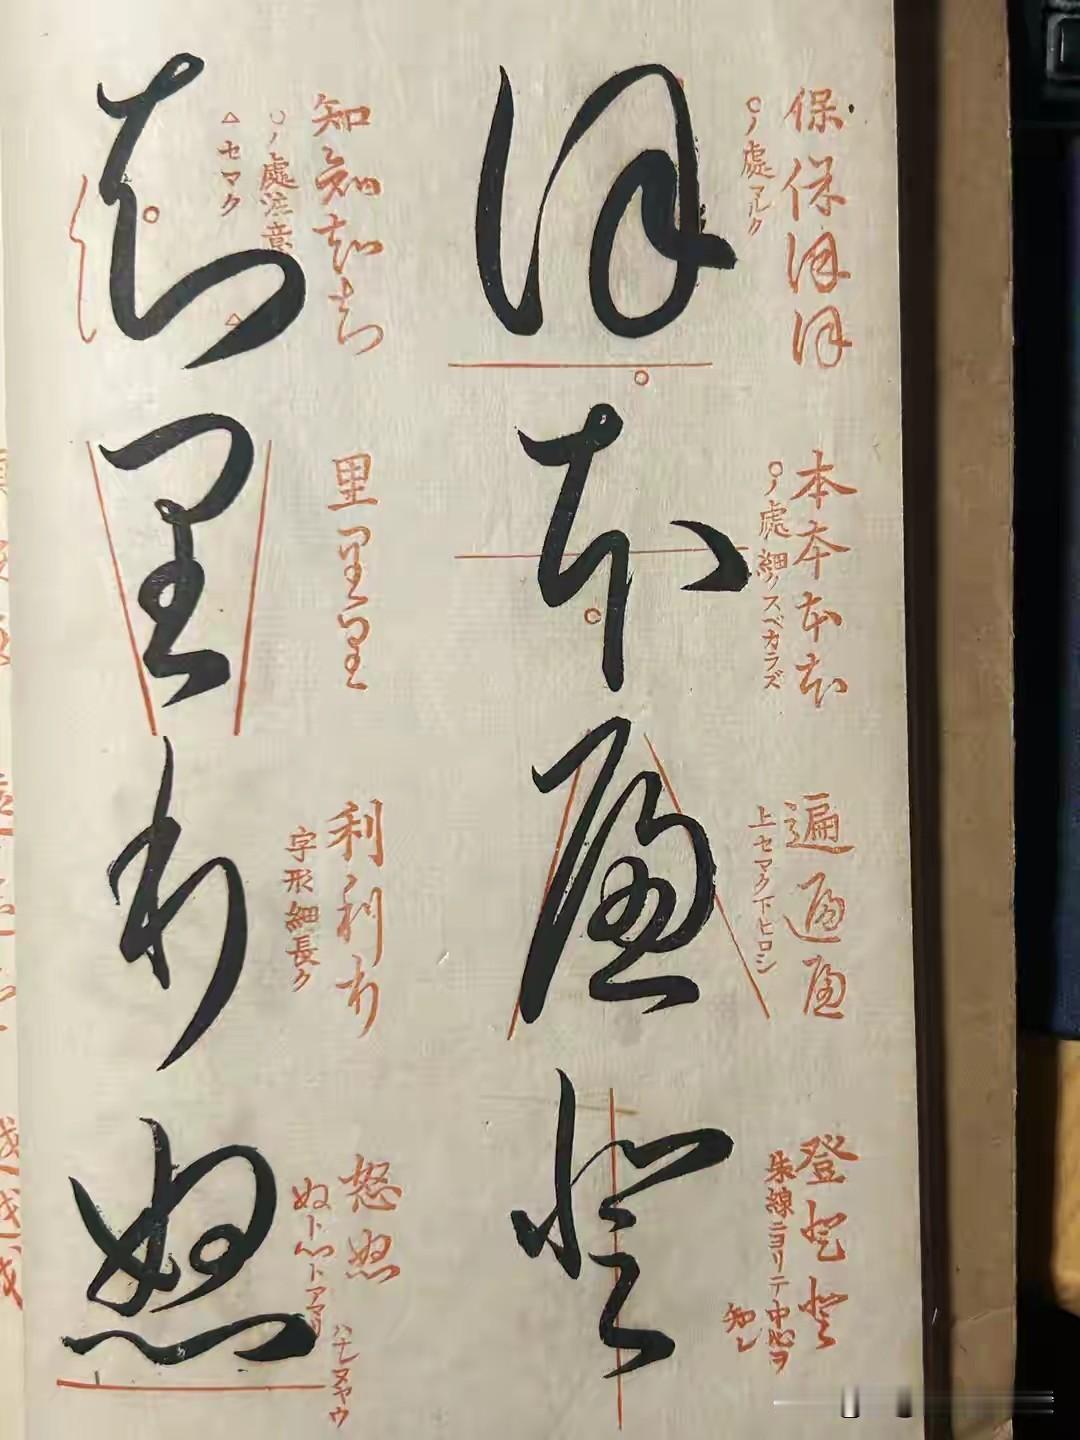 保 保 保 保 保
○ノ處マルク
本 本 本 本 本
○ノ處細クスベカラズ
遍 遍 遍 遍
上セマク下ヒロシ
登 登 登 登
朱線ニヨリテ中心ヲ
知レ
知 知 知 知 知
○ノ處注意
△セマク
里 里 里 里
利 利 利 利
字形細長ク
怒 怒 怒
ぬト心トアマリ
ハナレヌヤウ